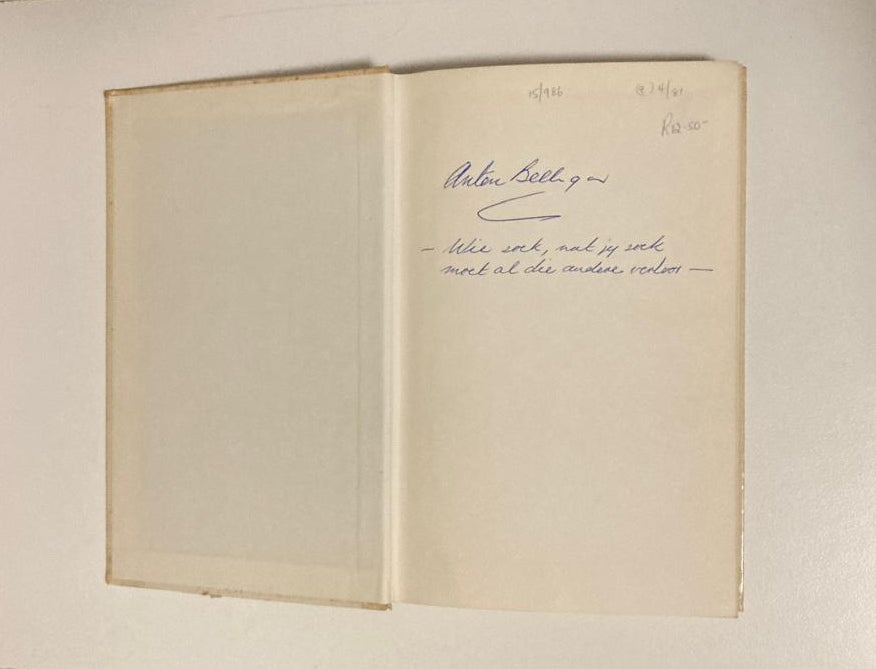 15/986
4/81
R12.50
Anton
— Wie soek, wat jy soek
moet al die andere verloor —